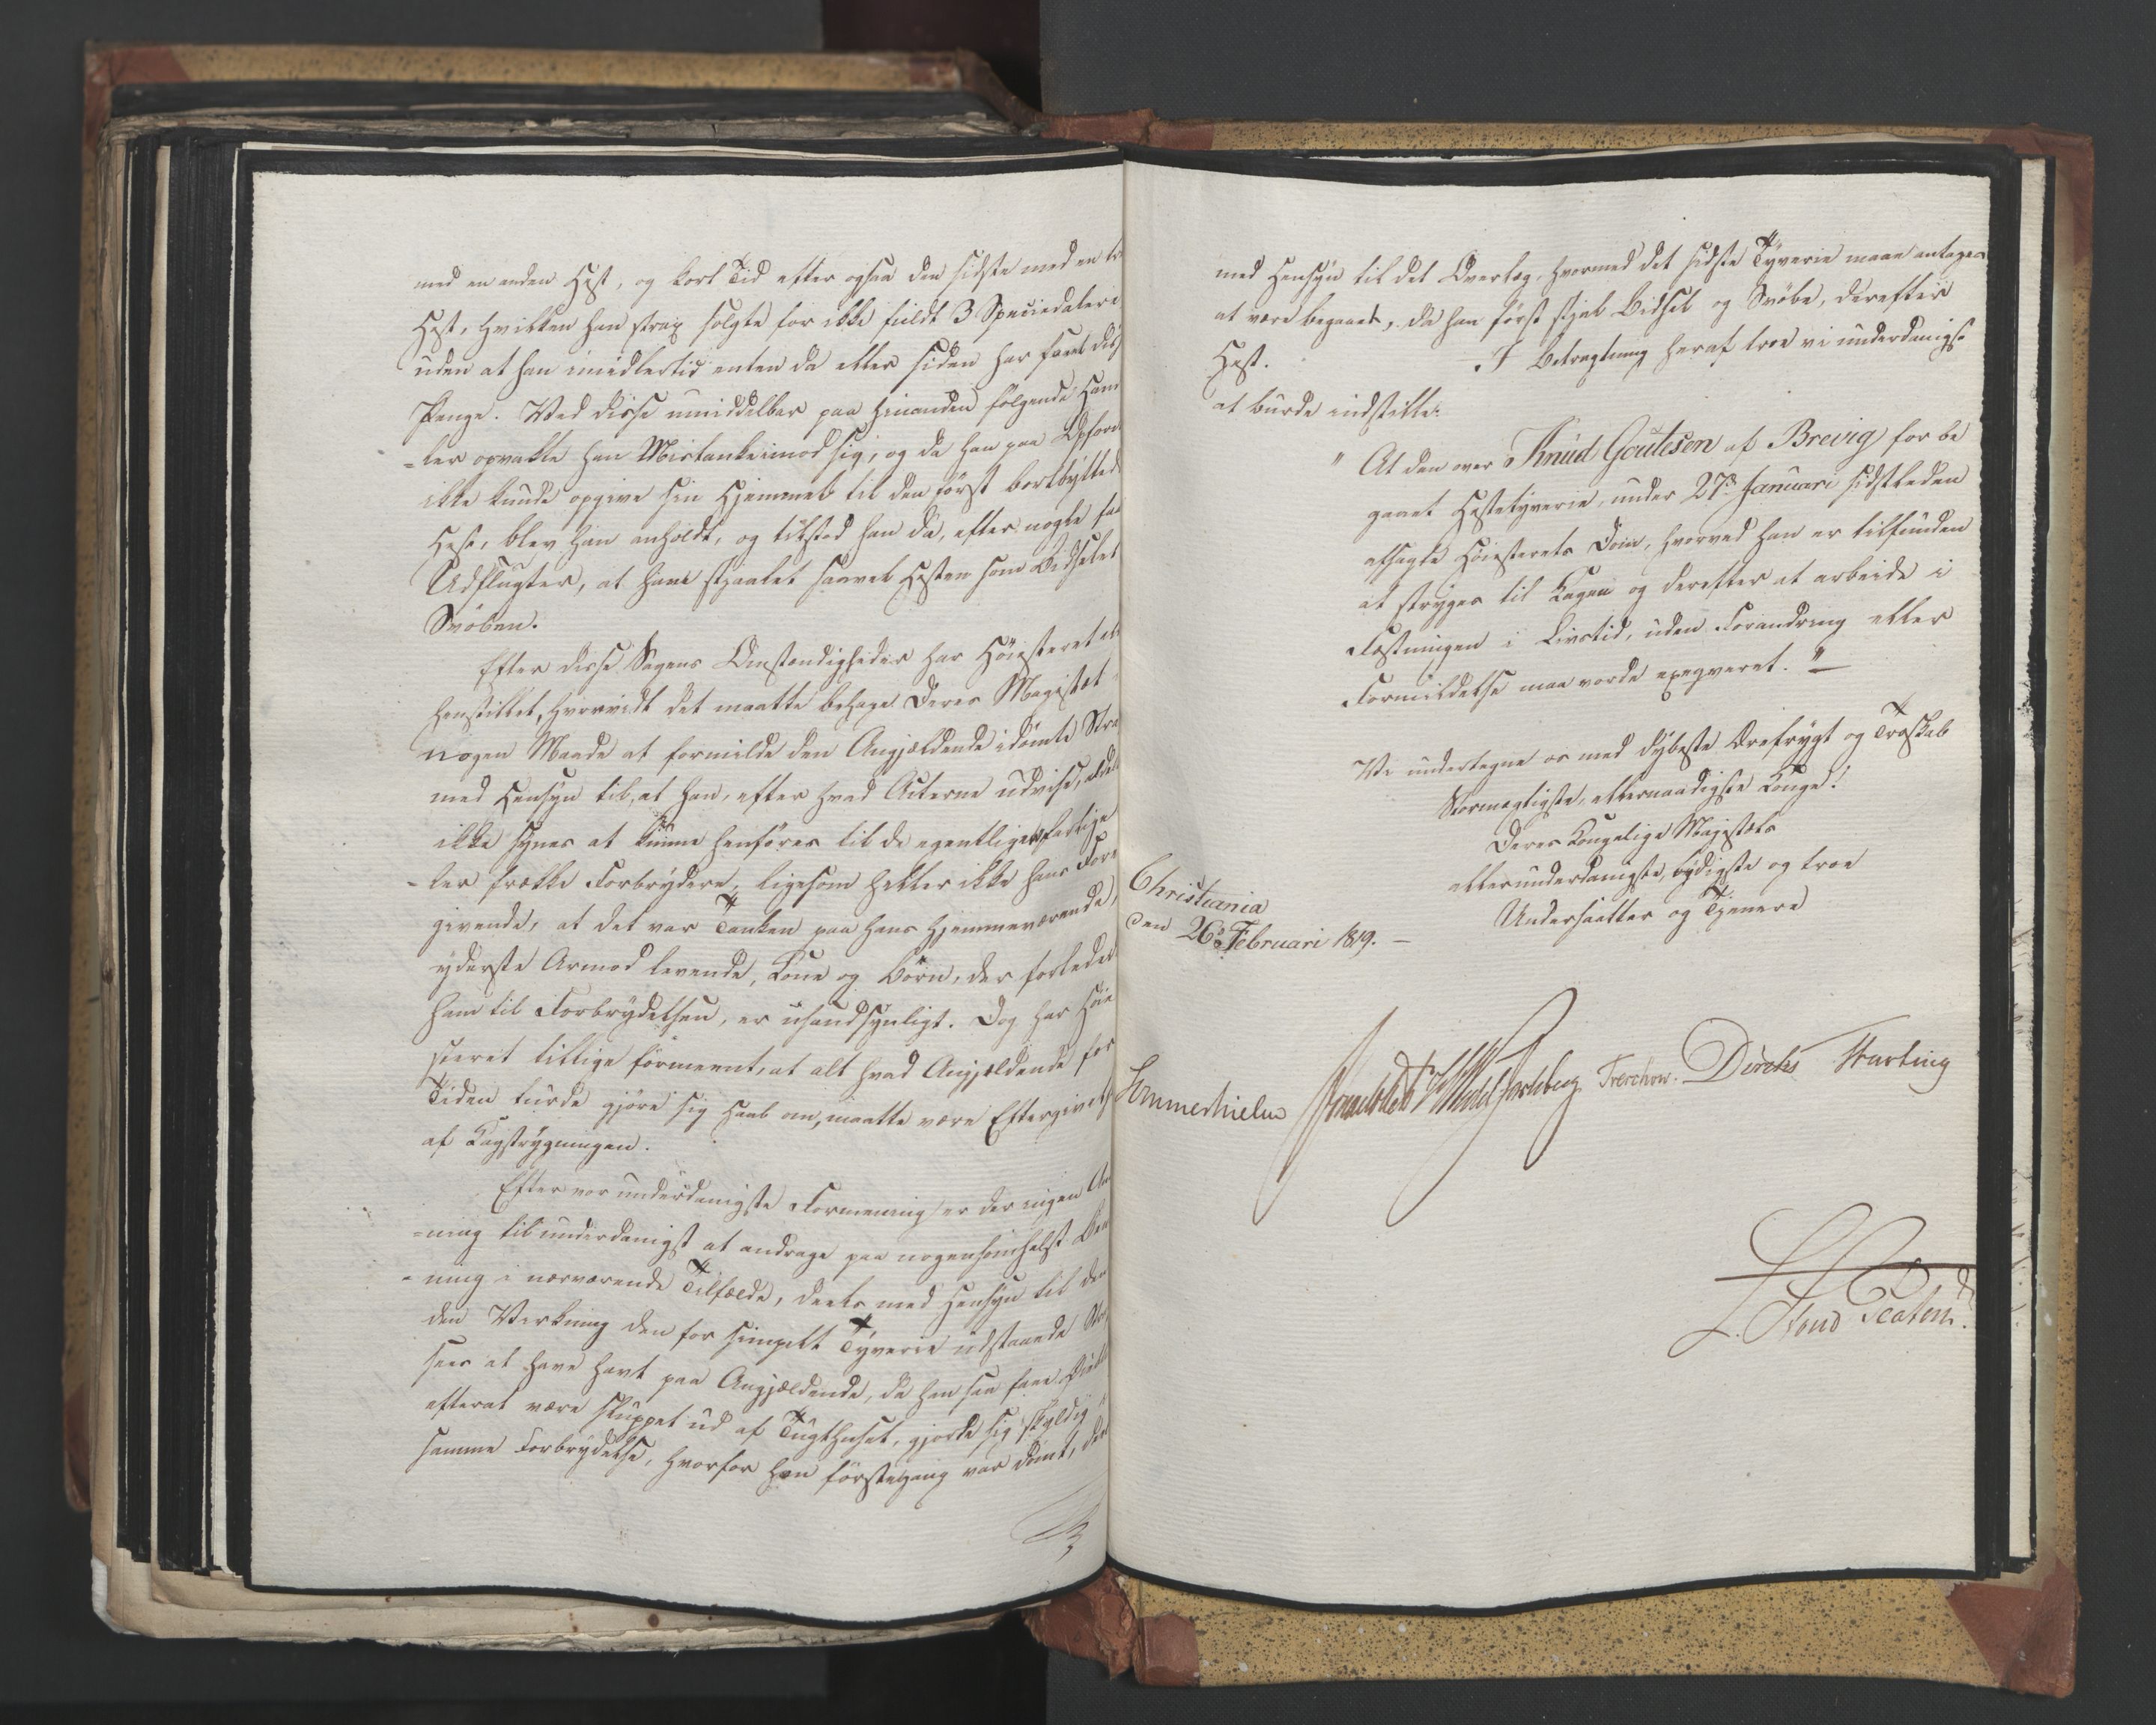 med en anden Hest, og kort Tid efter ogsaa den sidste med en tr
Hest, hvilken han strax solgte for ikke fuldt 3 Speciedalere
uden at han imidlertid enten da eller siden har faaet disse
Penge. Ved disse umiddelbar paa hinanden følgende Han
-ler opvakte han Mistanke imod sig, og da han paa Opford
ikke kunde opgive sin Hjemmel til den først bortbyttede
Hest, blev han anholdt, og tilstod han da, efter nogle fa
Udflugter, at have stjaalet saavel Hesten som Bidselet
Svøben.
Efter disse Sagens Omstændigheder har Høiesteret
henstillet, hvorvidt det maatte behage Deres Majestæt
nogen Maade at formilde den Angjældende idømte Stra
med Hensyn til, at han, efter hvad Acterne udvise, aldel
ikke synes at kunne henføres til de egentlige farlige
-ler frække Forbrydere, ligesom heller ikke hans Fore
givende, at det var Tanken paa hans hjemmeværende, i
yderste Armod levende, Kone og Børn, der forledede
ham til Forbrydelsen, er usandsynligt. Dog har Høie
steret tillige formeent, at alt hvad Angjældende for
Tiden turde gjøre sig Haab om, maatte være Eftergivelse
af Kagstrygningen.
Efter vor underdanigste Formening er der ingen An
-ning til underdanigst at andrage paa nogensomhelst Ben
-ning i nærværende Tilfælde, deels med Hensyn til den
den Virkning den for simpelt Tyverie udstaaede Str
sees at have havt paa Angjældende, da han saa faae
efterat være sluppet ud af Tugthuset, gjorde sig skyldig i
samme Forbrydelse, hvorfor han førstegang var dømt, deels
med Hensyn til det Overlæg, hvormed det sidste Tyverie maae antages
at være begaaet, da han først stjal Bidsel og Svøbe, derefter
Hest. I Betragtning heraf troe vi underdanigst
at burde indstille:
" At den over Knud Goutesen af Brevig for be
gaaet Hestetyverie, under 27de Januari sidstleden
afsagte Høiesterets Dom, hvorved han er tilfunden
at stryges til Kagen og derefter at arbeide i
Fæstningen i Livstid, uden Forandring eller
Formildelse maa vorde exeqveret. "
Vi undertegne os med dybeste Ærefrygt og Troskab
Stormægtigste, allernaadigste Konge!
Deres Kongelige Majestæts
allerunderdanigste, lydigste og troe
Undersaatter og Tjenere
Christiania
den 26de Februari 1819. —
Sommerhielm Treschow. Diriks Krefting